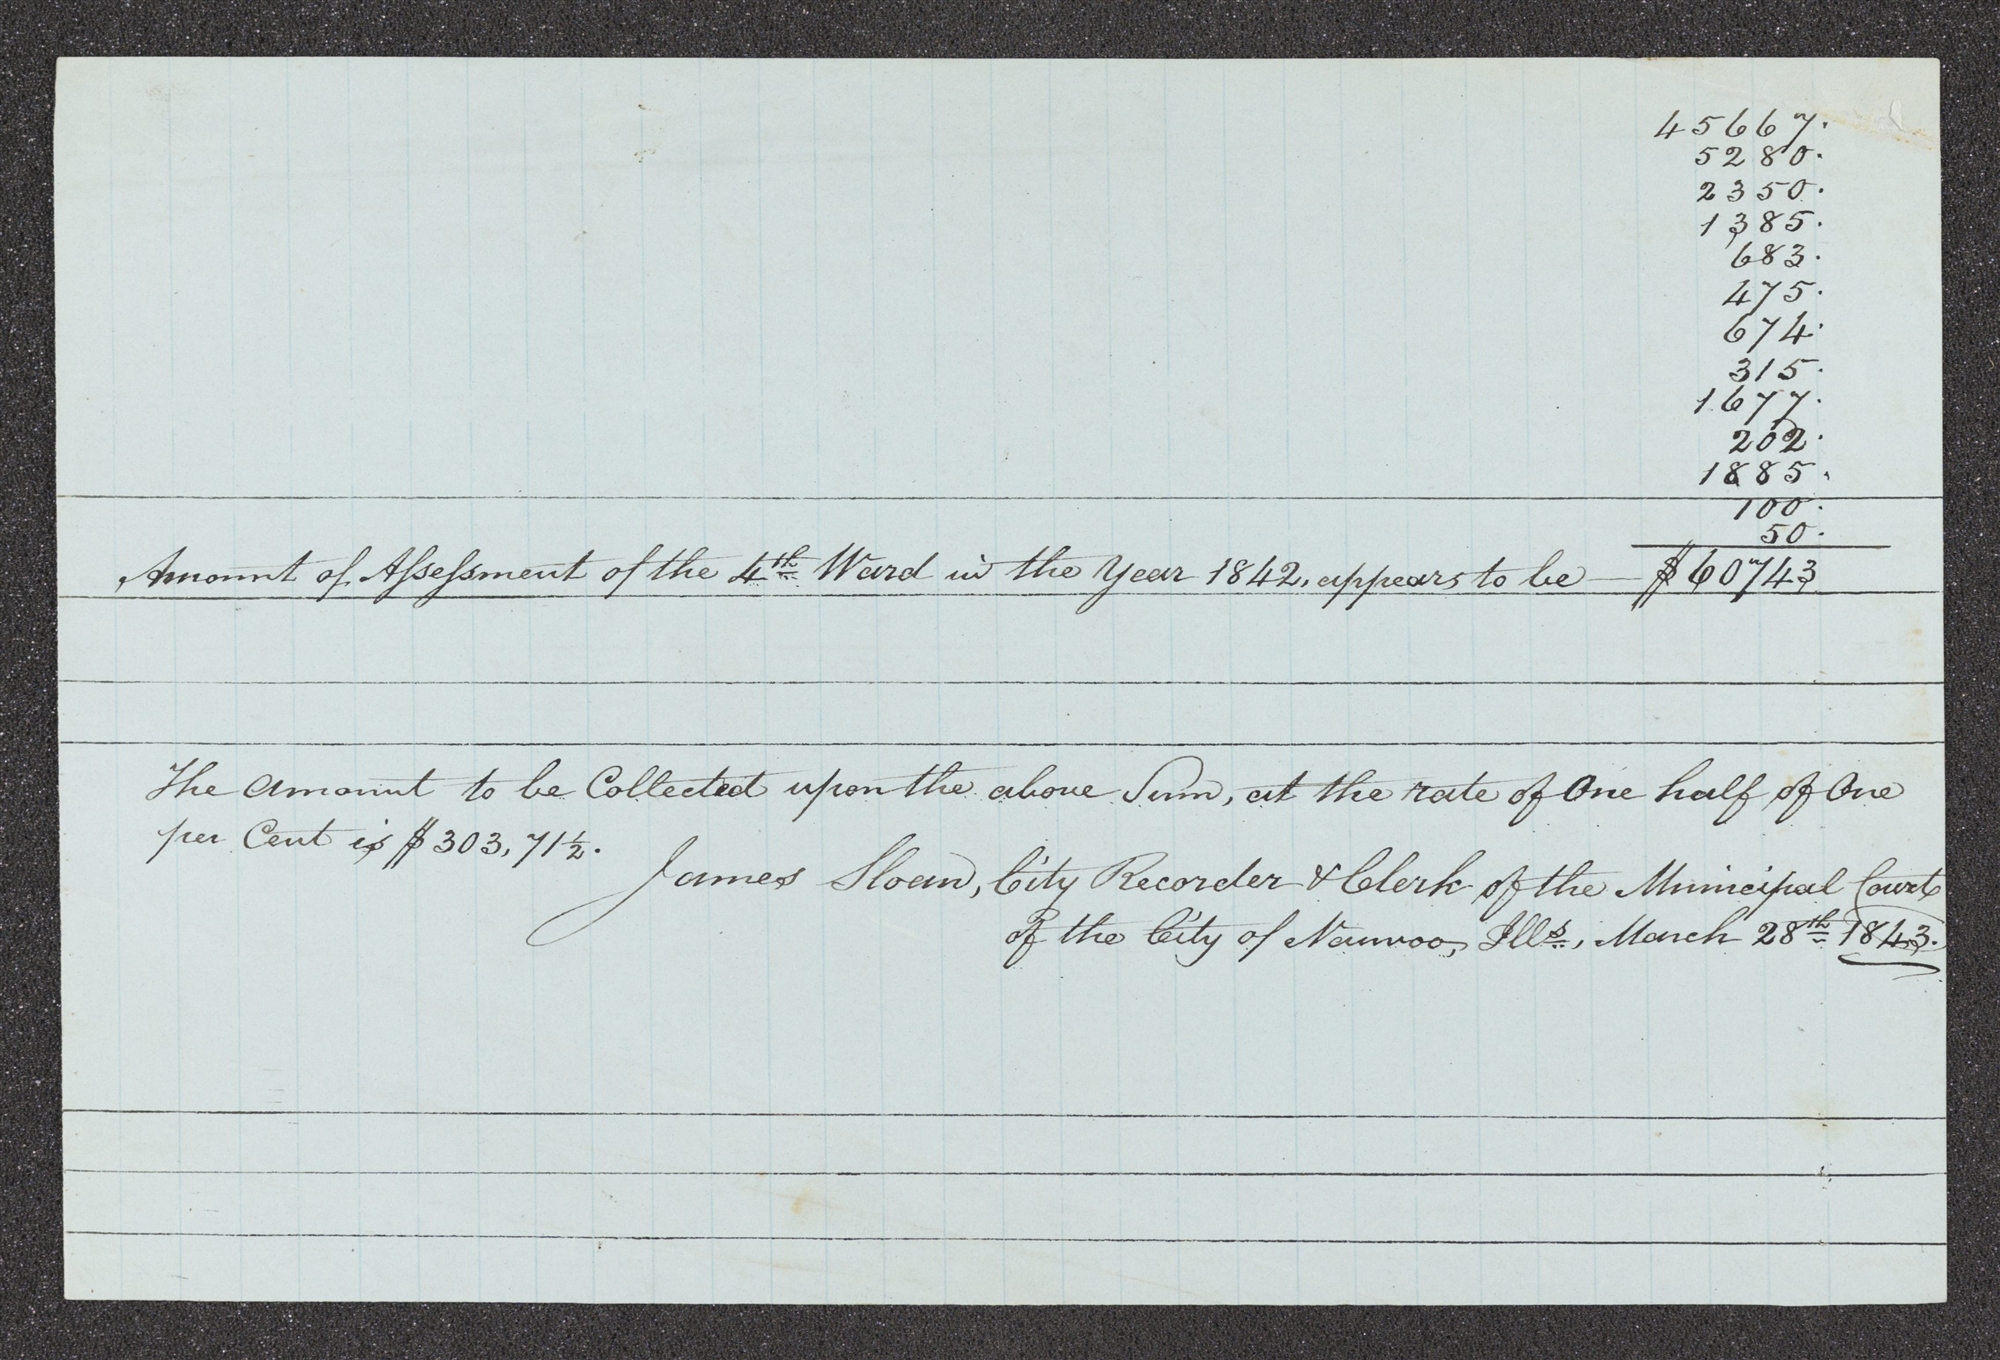 45667.
5280.
2350.
1385.
683.
475.
674.
315.
1677.
202.
1885.
100.
50.
Amount of Assessment of the 4th Ward in the Year 1842, appears to be — $60743
The amount to be Collected upon the above Sum, at the rate of One half of One
per Cent is $303,71½.
James Sloan, City Recorder & Clerk of the Municipal Court
of the City of Nauvoo, Ills, March 28th 1843.